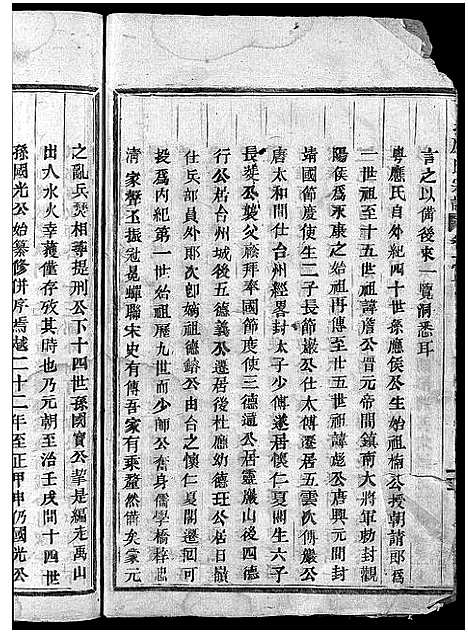 言之以備後來一覽洞悉耳
粵應氏自外紀四十世孫應侯公生始祖楠公授朝請郎爲
一世祖至十五世祖諱詹公晉元帝間鎮南大將軍勅封觀
陽侯爲永康之始祖再傳至廿五世祖諱彪公唐興元間封
靖國節度使生二子長節巖公仕太傅遷居五雲次傳巖公
唐太和時台州經畧封太子少傅遂居懷仁夏閣生六子
長從公襲父蔭拜奉國節度使三德邁公居靈巖山後四德
行公居台州城後五德義公遷居後杜應幼德玨公居日嶺
任兵部外郎次卽嫡祖德鐇公由台之懷仁夏閣遷芝英
投爲內紀第一世始祖展九世而少師公奮身儒學橋梓忠
清家聲玉振冠冕蟬聯宋史有傳吾家有乘釐然備矣蒙元
之亂兵焚相尋提刑公下十四世孫國寶公挈是編走禹山
出入水火幸獲僅存攷其時也乃元朝至治壬戌間十四世
孫國光公始纂修併序焉越二十二年至正甲申仍國光公